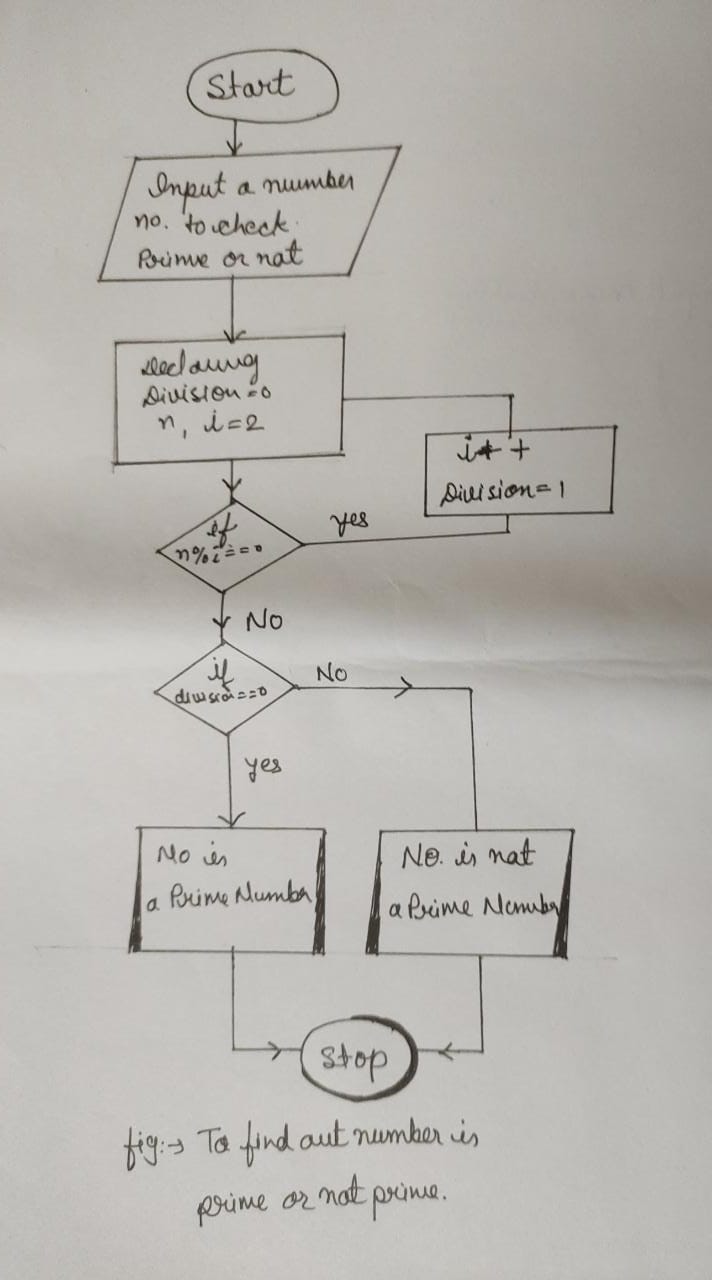 Start
Input a number
no. to check
Prime or nat
Declaring
Division=0
n, i=2
i++
Division=1
if
n%i==0
yes
No
if
division==0
No
yes
No is
a Prime Number
NO. is nat
a Prime Number
Stop
fig:→ To find aut number is
prime or not prime.